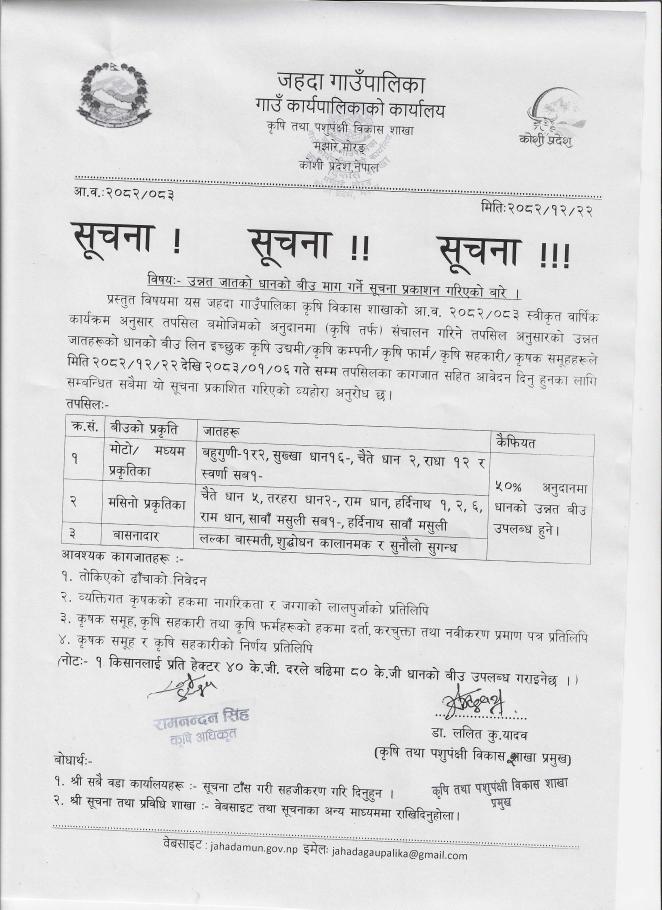 जहदा गाउँपालिका
गाउँ कार्यपालिकाको कार्यालय
कृषि तथा पशुपंक्षी विकास शाखा
मझारे,मोरङ
कोशी प्रदेश,नेपाल
कोशी प्रदेश
आ.व.:२०८२/०८३
मिति:२०८२/१२/२२
सूचना ! सूचना !! सूचना !!!
विषय:- उन्नत जातको धानको बीउ माग गर्ने सूचना प्रकाशन गरिएको बारे ।
प्रस्तुत विषयमा यस जहदा गाउँपालिका कृषि विकास शाखाको आ.व. २०८२/०८३ स्वीकृत वार्षिक
कार्यक्रम अनुसार तपसिल बमोजिमको अनुदानमा (कृषि तर्फ) संचालन गरिने तपसिल अनुसारको उन्नत
जातहरूको धानको बीउ लिन इच्छुक कृषि उद्यमी/कृषि कम्पनी/ कृषि फार्म/ कृषि सहकारी/ कृषक समूहहरूले
मिति २०८२/१२/२२ देखि २०८३/०१/०६ गते सम्म तपसिलका कागजात सहित आवेदन दिनु हुनका लागि
सम्बन्धित सबैमा यो सूचना प्रकाशित गरिएको व्यहोरा अनुरोध छ।
तपसिल:-
क्र.सं. बीउको प्रकृति जातहरू कैफियत
१ मोटो/ मध्यम प्रकृतिका बहुगुणी-१र२, सुख्खा धान१६-, चैते धान २, राधा १२ र
स्वर्णा सब१-
५०% अनुदानमा
धानको उन्नत बीउ
उपलब्ध हुने।
२ मसिनो प्रकृतिका चैते धान ५, तरहरा धान२-, राम धान, हर्दिनाथ १, २, ६,
राम धान, सावाँ मसुली सब१-, हर्दिनाथ सावाँ मसुली
३ बासनादार लल्का बास्मती, शुद्धोधन कालानमक र सुनौलो सुगन्ध
आवश्यक कागजातहरू :-
१. तोकिएको ढाँचाको निवेदन
२. व्यक्तिगत कृषकको हकमा नागरिकता र जग्गाको लालपुर्जाको प्रतिलिपि
३. कृषक समूह, कृषि सहकारी तथा कृषि फर्महरूको हकमा दर्ता, करचुक्ता तथा नवीकरण प्रमाण पत्र प्रतिलिपि
४. कृषक समूह र कृषि सहकारीको निर्णय प्रतिलिपि
(नोट:- १ किसानलाई प्रति हेक्टर ४० के.जी. दरले बढिमा ८० के.जी धानको बीउ उपलब्ध गराइनेछ ।)
रामनन्दन सिंह
कृषि अधिकृत
डा. ललित कु.यादव
(कृषि तथा पशुपंक्षी विकास शाखा प्रमुख)
कृषि तथा पशुपंक्षी विकास शाखा
प्रमुख
बोधार्थ:-
१. श्री सबै वडा कार्यालयहरू :- सूचना टाँस गरी सहजीकरण गरि दिनुहुन ।
२. श्री सूचना तथा प्रबिधि शाखा :- वेबसाइट तथा सूचनाका अन्य माध्यममा राखिदिनुहोला।
वेबसाइट : jahadamun.gov.np इमेल: jahadagaupalika@gmail.com